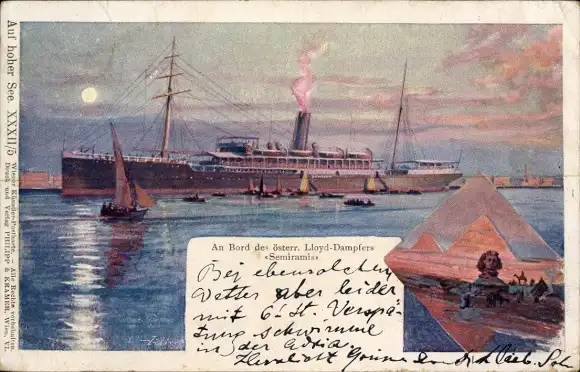 Auf hoher See. XXXII/5
Wiener Künstler-Postkarte. — Alle Rechte vorbehalten.
Druck und Verlag PHILIPP & KRAMER, Wien, VI.
An Bord des österr. Lloyd-Dampfers
«Semiramis»
Bei ebensolchem
Wetter aber leider
mit 6 St. Verspä-
tung schwimme
in der Adria.
Herzlichst